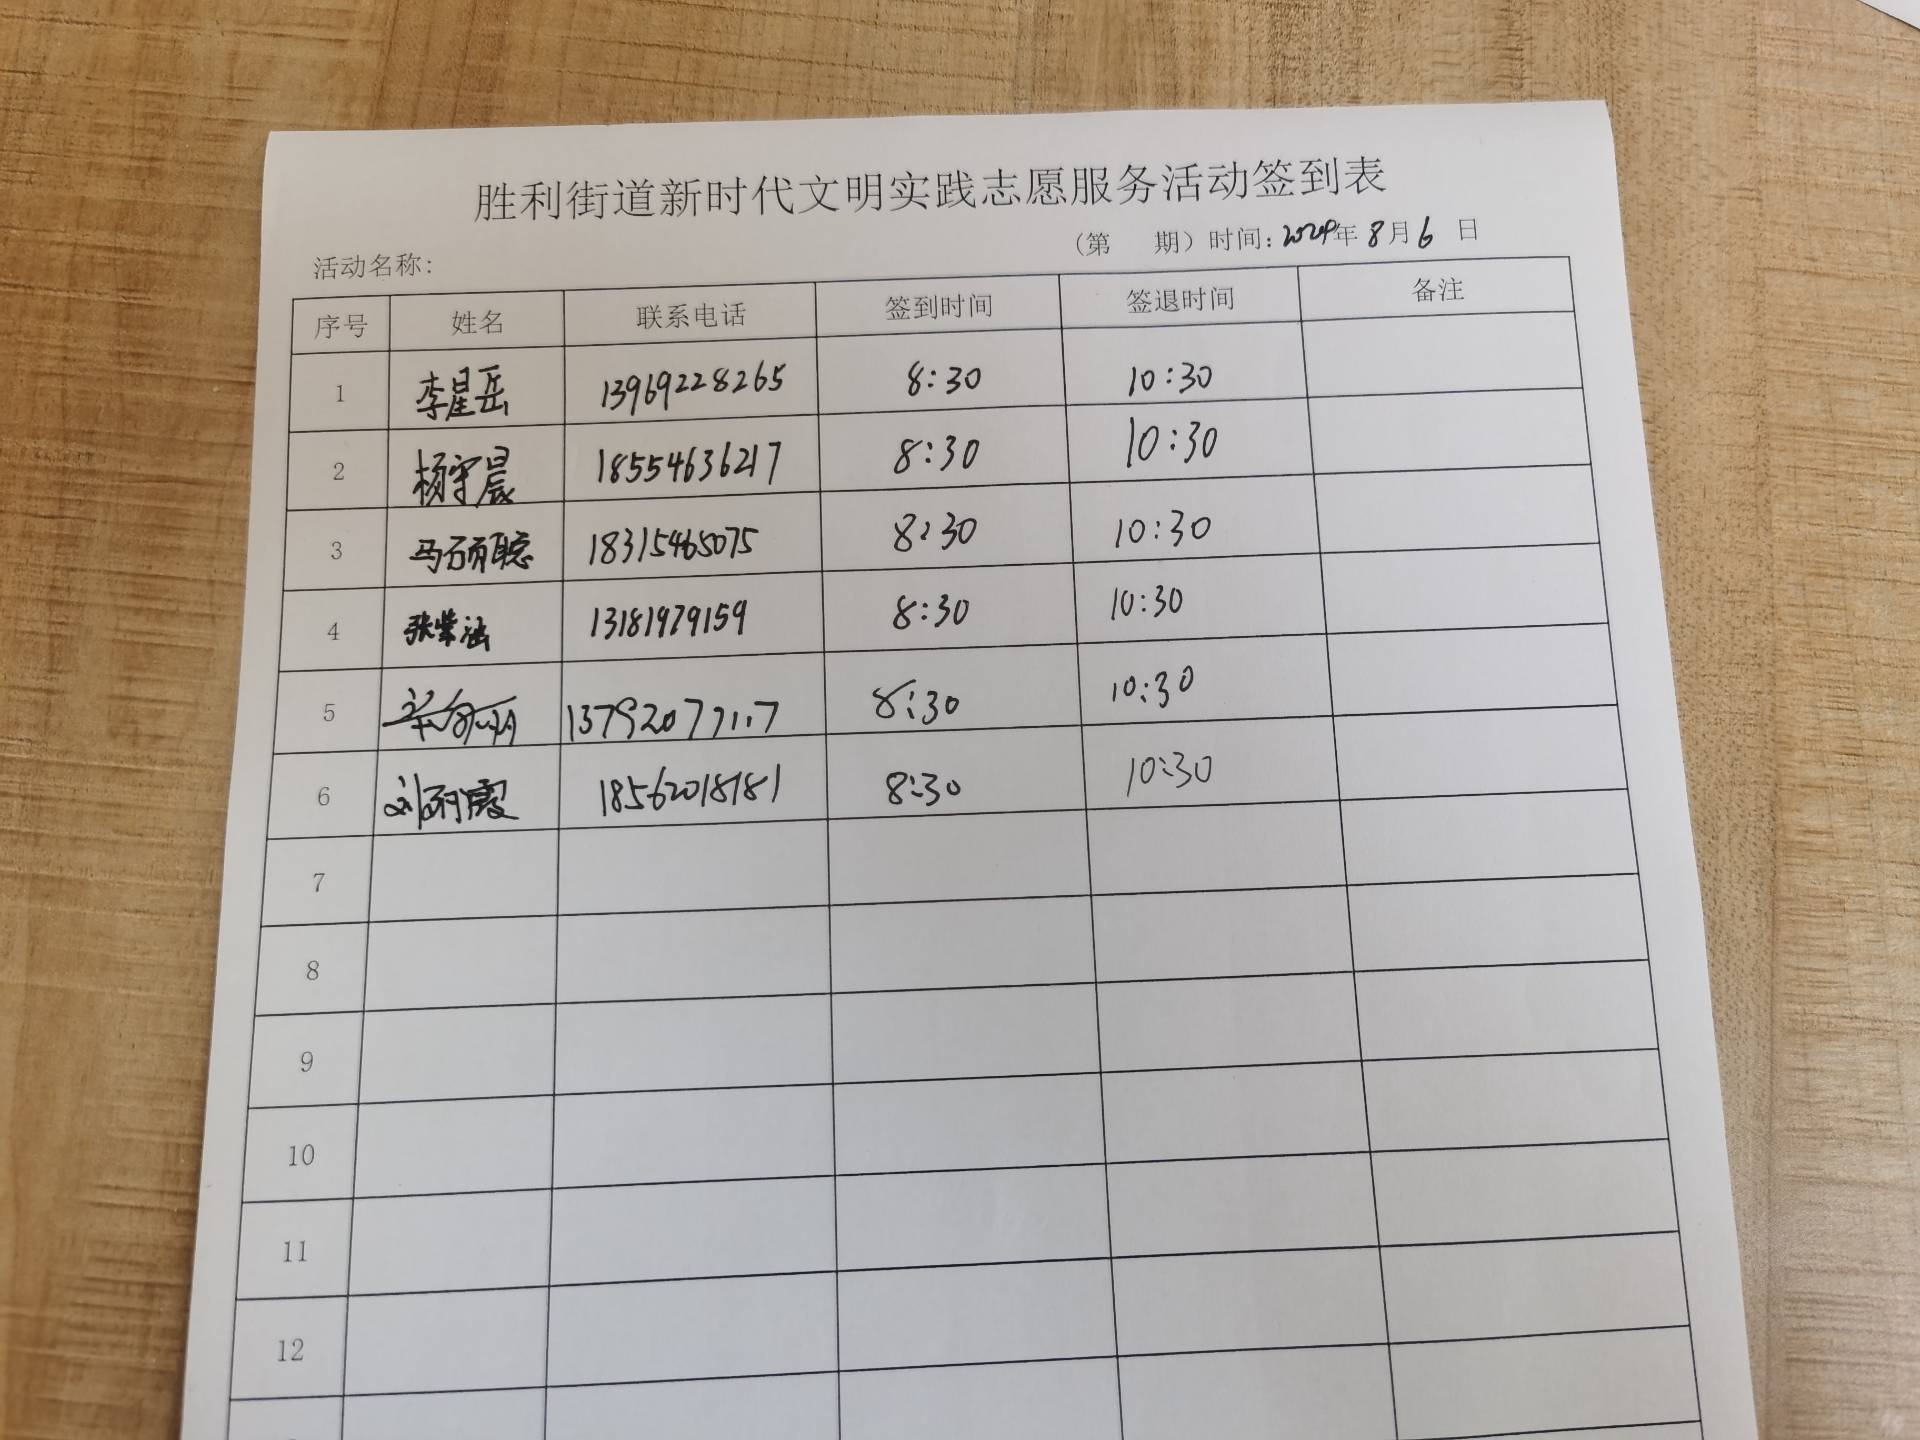 胜利街道新时代文明实践志愿服务活动签到表
(第 期)时间:2024年8月6日
活动名称:
序号 姓名 联系电话 签到时间 签退时间 备注
1 李星岳 13969228265 8:30 10:30
2 杨守晨 18554636217 8:30 10:30
3 马硕聪 18315465075 8:30 10:30
4 张荣法 13181979159 8:30 10:30
5 8:30 10:30
6 刘丽霞 18562018181 8:30 10:30
7
8
9
10
11
12